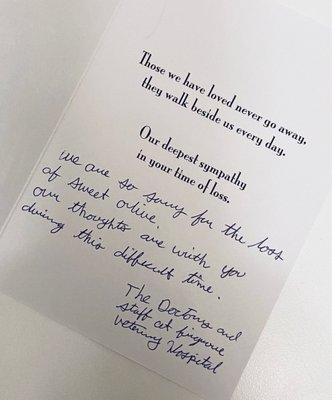 Those we have loved never go away,
they walk beside us every day.
Our deepest sympathy
in your time of loss.
We are so sorry for the loss
of sweet olive.
our thoughts are with you
during this difficult time.
The Doctors and
staff at
Hospital